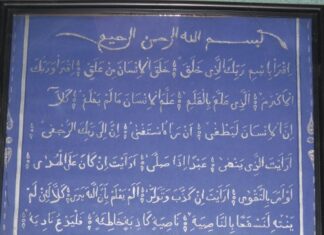 بسم الله الرحمن الرحيم
اقرأ باسم ربك الذي خلق خلق الإنسان من علق اقرأ وربك
الأكرم الذي علم بالقلم علم الإنسان ما لم يعلم كلا
إن الإنسان ليطغى أن رآه استغنى إن إلى ربك الرجعى
أرأيت الذي ينهى عبدا إذا صلى أرأيت إن كان على الهدى
أو أمر بالتقوى أرأيت إن كذب وتولى ألم يعلم بأن الله يرى كلا لئن لم
ينته لنسفعا بالناصية ناصية كاذبة خاطئة فليدع ناديه